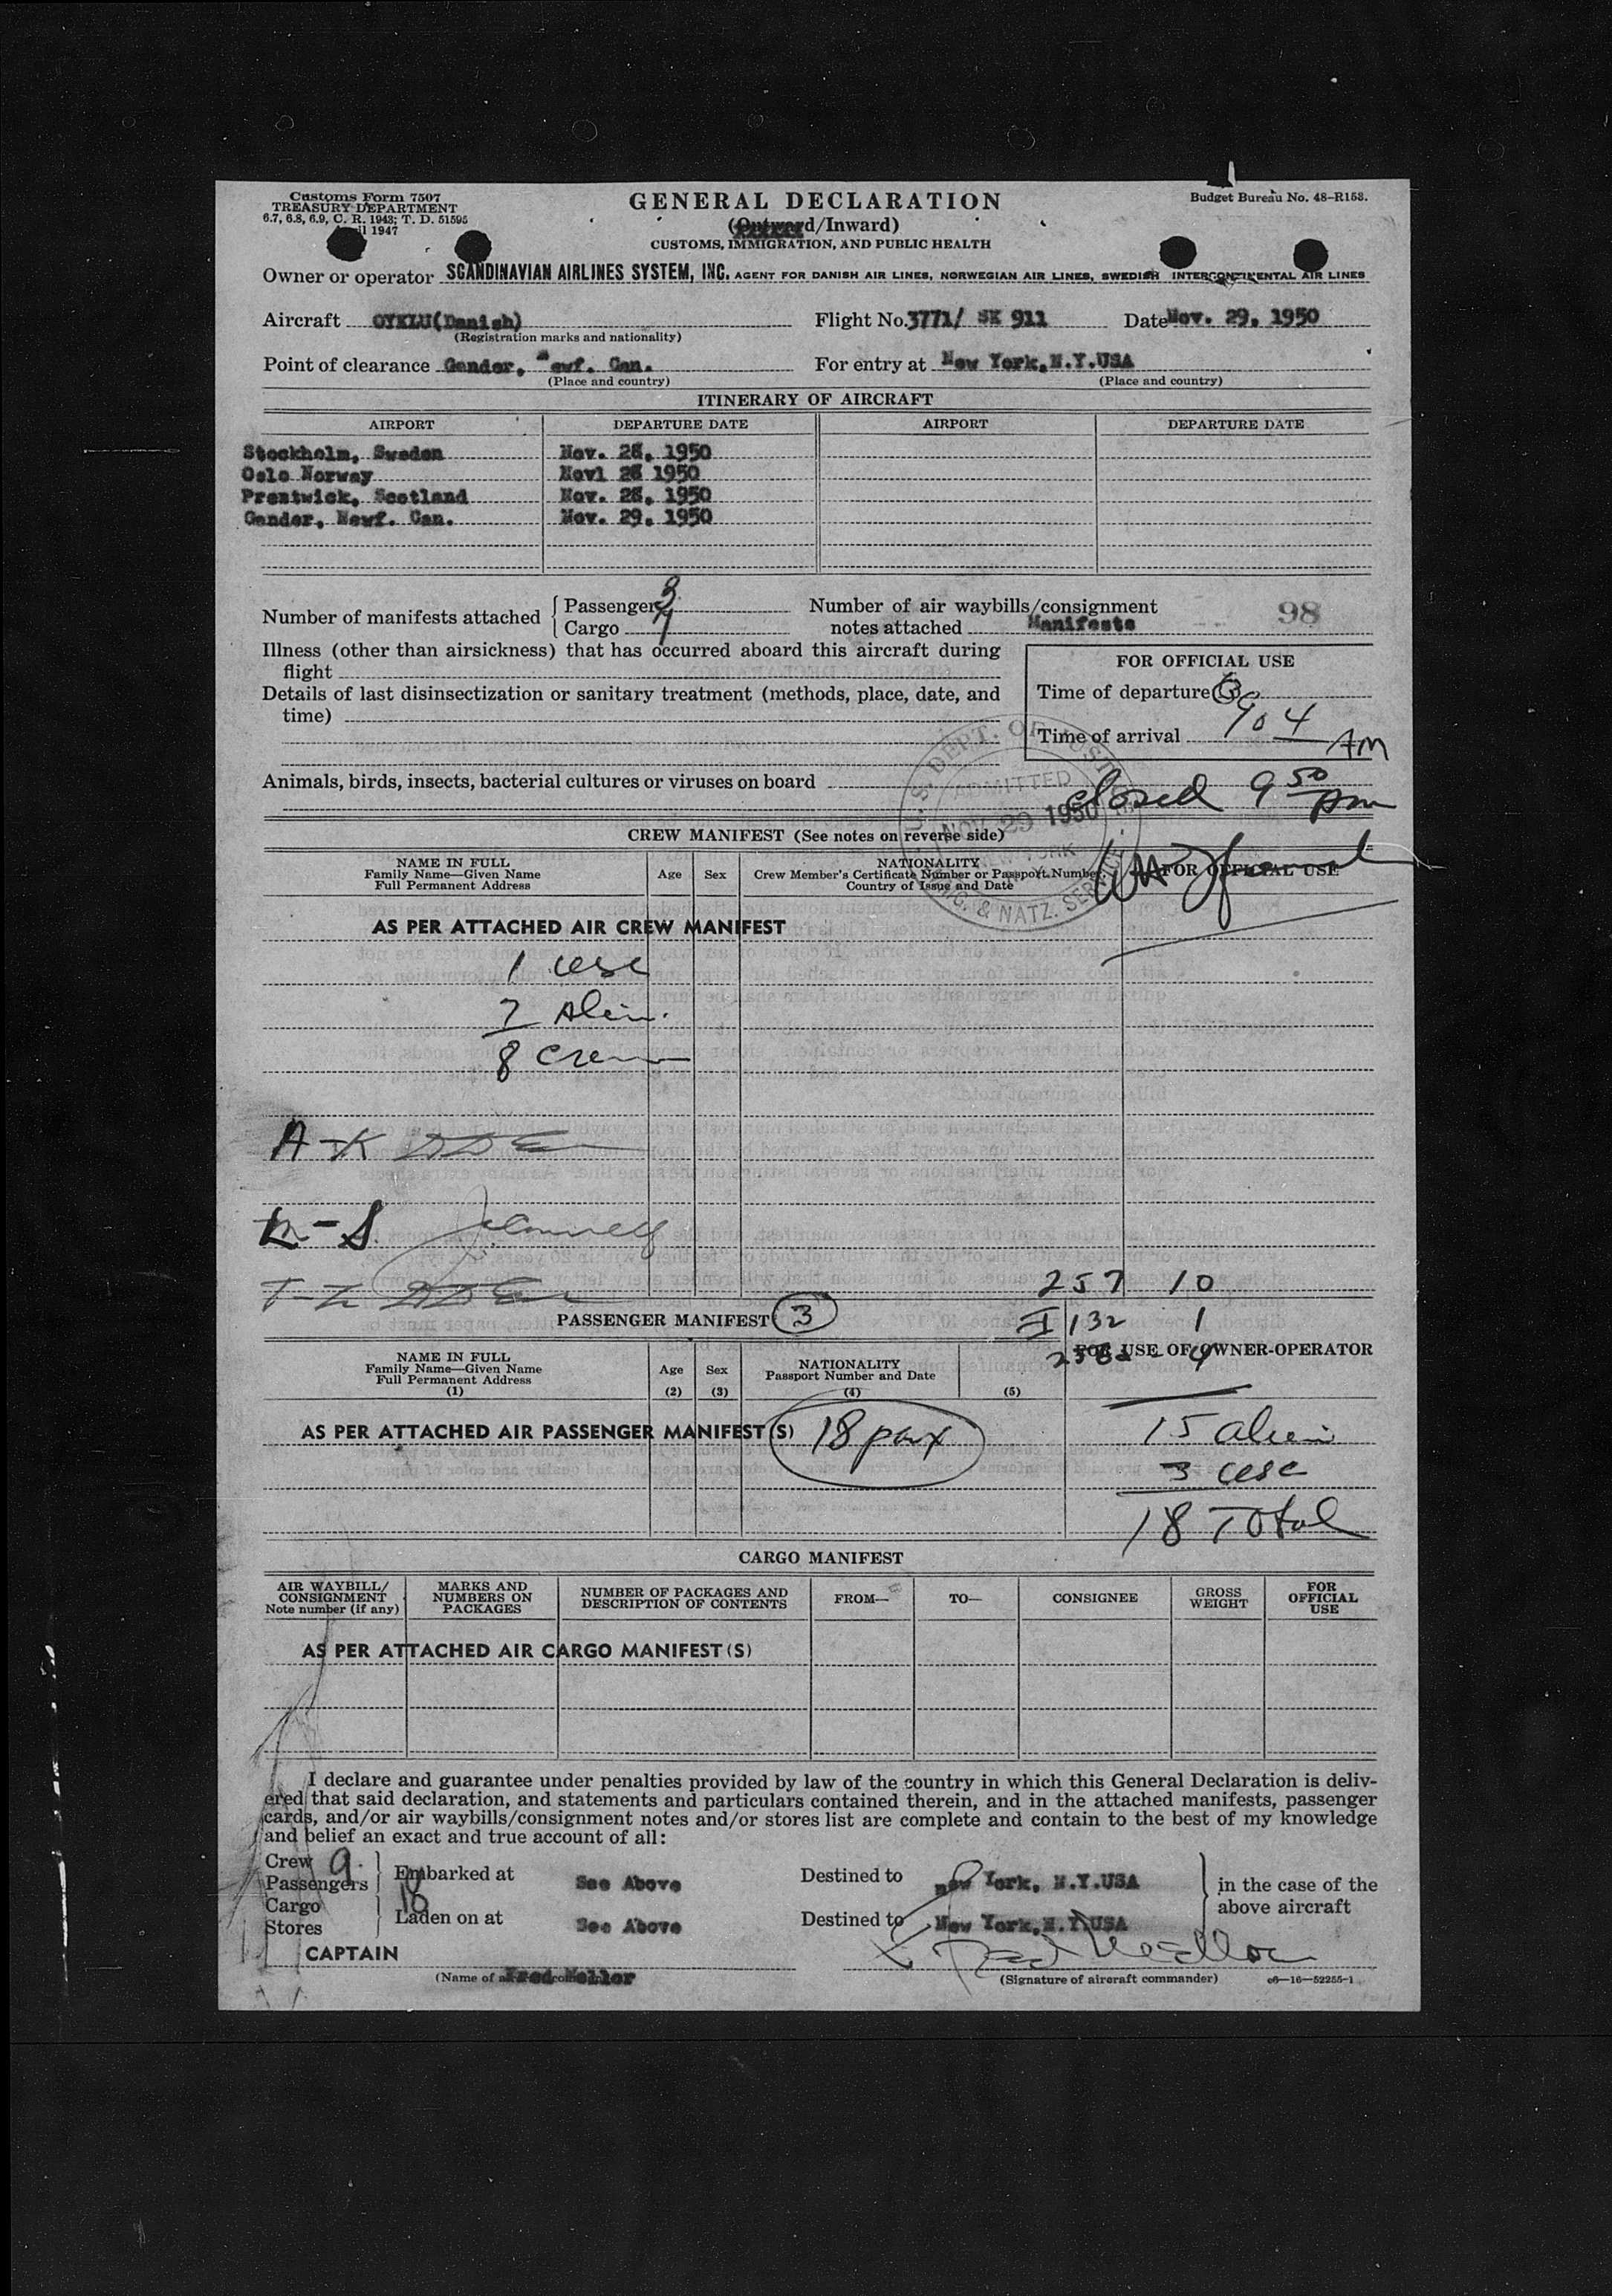 Customs Form 7507
TREASURY DEPARTMENT
6.7, 6.8, 6.9, C. R. 1943; T. D. 51595
April 1947
GENERAL DECLARATION
(Outward/Inward)
CUSTOMS, IMMIGRATION, AND PUBLIC HEALTH
Budget Bureau No. 48-R153.
Owner or operator SCANDINAVIAN AIRLINES SYSTEM, INC. AGENT FOR DANISH AIR LINES, NORWEGIAN AIR LINES, SWEDISH INTERCONTINENTAL AIR LINES
Aircraft OYKLU(Danish) Flight No. 3771/ SK 911 Date Nov. 29, 1950
(Registration marks and nationality)
Point of clearance Gander, Newf. Can. For entry at New York, N.Y.USA
(Place and country) (Place and country)
ITINERARY OF AIRCRAFT
AIRPORT DEPARTURE DATE AIRPORT DEPARTURE DATE
Stockholm, Sweden Nov. 28, 1950
Oslo Norway Novl 28 1950
Prestwick, Scotland Nov. 28, 1950
Gander, Newf. Can. Nov. 29, 1950
Number of manifests attached { Passenger 3
Cargo 7
Number of air waybills/consignment
notes attached Manifests
98
Illness (other than airsickness) that has occurred aboard this aircraft during
flight
Details of last disinsectization or sanitary treatment (methods, place, date, and
time)
FOR OFFICIAL USE
Time of departure
Time of arrival 904 AM
Animals, birds, insects, bacterial cultures or viruses on board
closed 9 50 AM
U.S. DEPT. OF JUSTICE
ADMITTED
NOV 29 1950
NEW YORK
IMMIG. & NATZ. SERVICE
CREW MANIFEST (See notes on reverse side)
NAME IN FULL
Family Name—Given Name
Full Permanent Address
Age Sex
NATIONALITY
Crew Member's Certificate Number or Passport Number
Country of Issue and Date
FOR OFFICIAL USE
AS PER ATTACHED AIR CREW MANIFEST
1 USC
7 Alien.
8 Crew
A-K
-S
T-Z
257 10
I 132 1
4
PASSENGER MANIFEST 3
FOR USE OF OWNER-OPERATOR
NAME IN FULL
Family Name—Given Name
Full Permanent Address
(1)
Age
(2)
Sex
(3)
NATIONALITY
Passport Number and Date
(4) (5)
AS PER ATTACHED AIR PASSENGER MANIFEST (S) 18 pax
15 alien
3 USC
18 Total
CARGO MANIFEST
AIR WAYBILL/
CONSIGNMENT
Note number (if any)
MARKS AND
NUMBERS ON
PACKAGES
NUMBER OF PACKAGES AND
DESCRIPTION OF CONTENTS
FROM— TO— CONSIGNEE
GROSS
WEIGHT
FOR
OFFICIAL
USE
AS PER ATTACHED AIR CARGO MANIFEST (S)
I declare and guarantee under penalties provided by law of the country in which this General Declaration is deliv-
ered that said declaration, and statements and particulars contained therein, and in the attached manifests, passenger
cards, and/or air waybills/consignment notes and/or stores list are complete and contain to the best of my knowledge
and belief an exact and true account of all:
Crew 9.
Passengers
Embarked at See Above Destined to New York, N.Y.USA
Cargo
Stores
Laden on at See Above Destined to New York, N.Y.USA
in the case of the
above aircraft
CAPTAIN
Fred Mellor
(Signature of aircraft commander) c6—16—52255-1